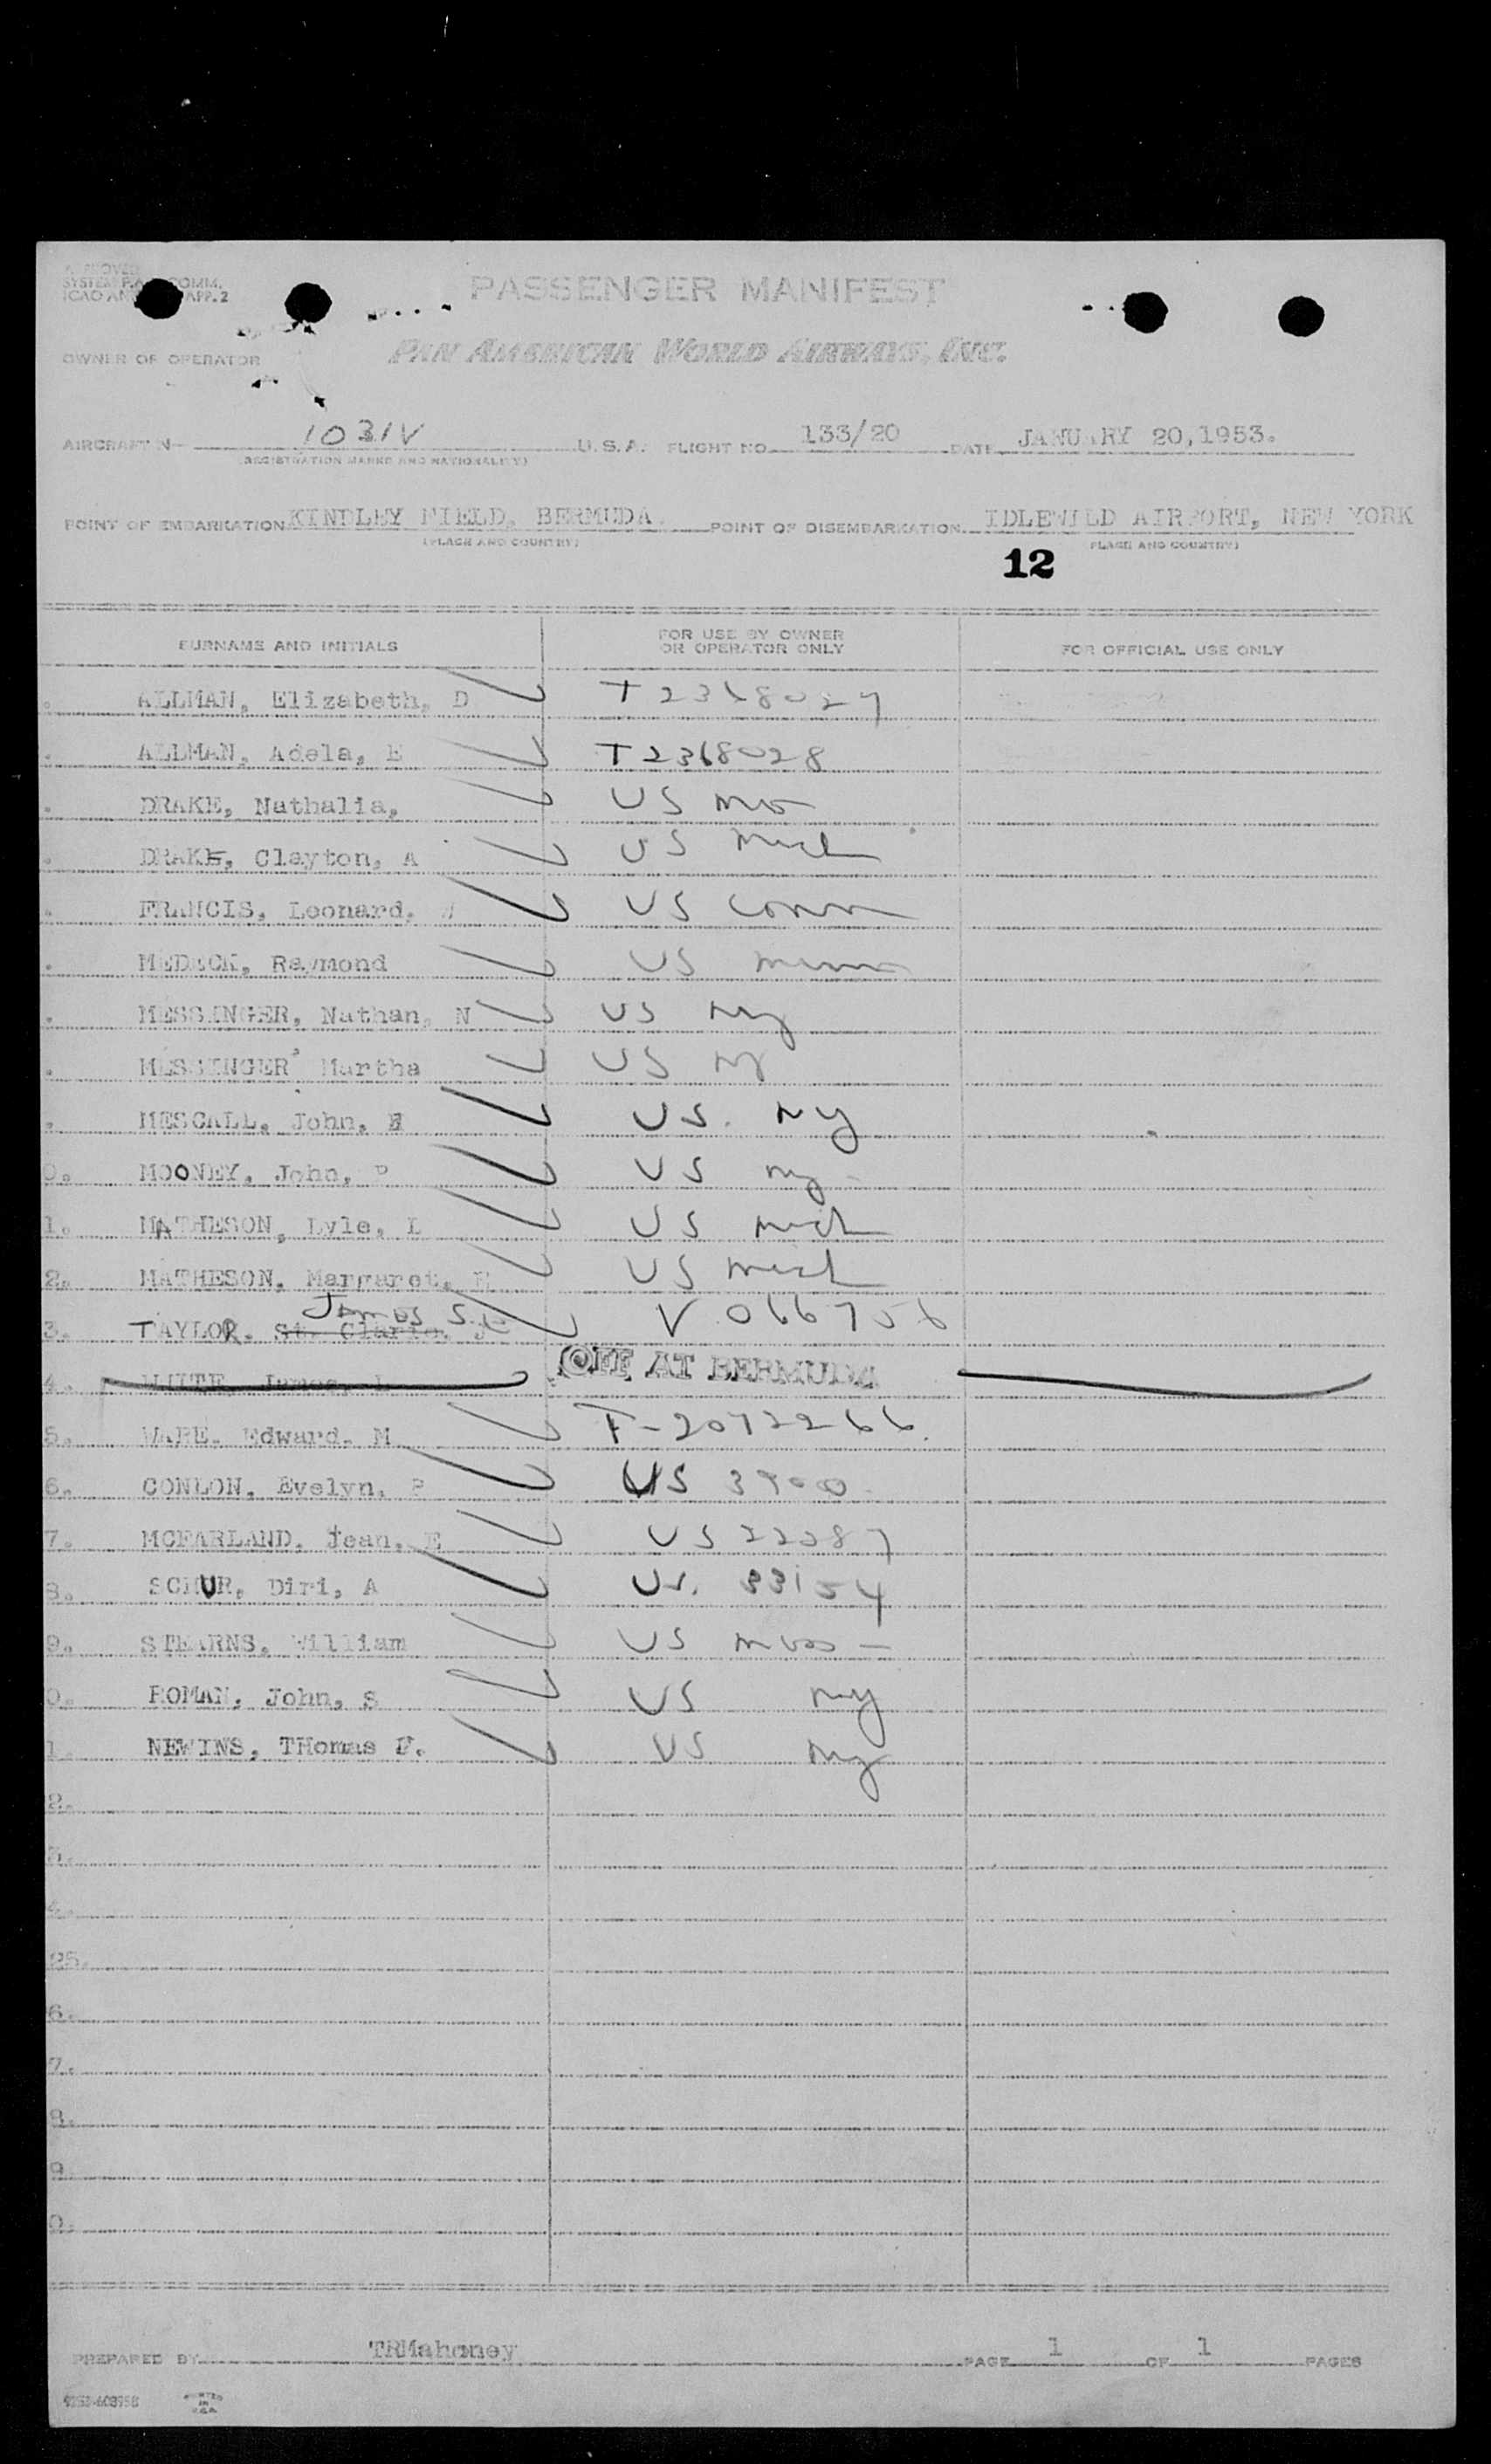 APPROVED
SYSTEM F.A. COMM.
ICAO AN APP. 2
PASSENGER MANIFEST
OWNER OF OPERATOR PAN AMERICAN WORLD AIRWAYS, INC.
AIRCRAFT N- 1031V U.S.A. FLIGHT NO. 133/20 DATE JANUARY 20,1953.
(REGISTRATION MARKS AND NATIONALITY)
POINT OF EMBARKATION KINDLEY FIELD, BERMUDA. POINT OF DISEMBARKATION IDLEWILD AIRPORT, NEW YORK
(PLACE AND COUNTRY) PLACE AND COUNTRY)
12
SURNAME AND INITIALS FOR USE BY OWNER OR OPERATOR ONLY FOR OFFICIAL USE ONLY
. ALLMAN, Elizabeth, D T2368027
. ALLMAN, Adela, E T2368028
. DRAKE, Nathalia, US mo
. DRAKE, Clayton, A US mich
. FRANCIS, Leonard, W US conn
. MEDECK, Raymond US
. MESSINGER, Nathan, N US ny
. MESSINGER, Martha US ny
. MESCALL, John, E US. ny
0. MOONEY, John, P US ny
1. MATHESON, Lyle, L US mich
2. MATHESON, Margaret, US mich
James St
3. TAYLOR, St. Clario, J V 066756
4. WHITE, James, L OFF AT BERMUDA
5. WARE, Edward, M T-2072266.
6. CONLON, Evelyn, P US 3900
7. MCFARLAND, Jean, E US 22287
8. SCHUR, Diri, A US. 33154
9. STEARNS, William US mass -
0. ROMAN, John, S US ny
1. NEWINS, THomas F. US ny
2.
3.
4.
25.
6.
7.
8.
9.
0.
PREPARED BY TRMahoney PAGE 1 OF 1 PAGES
PRINTED IN U.S.A.